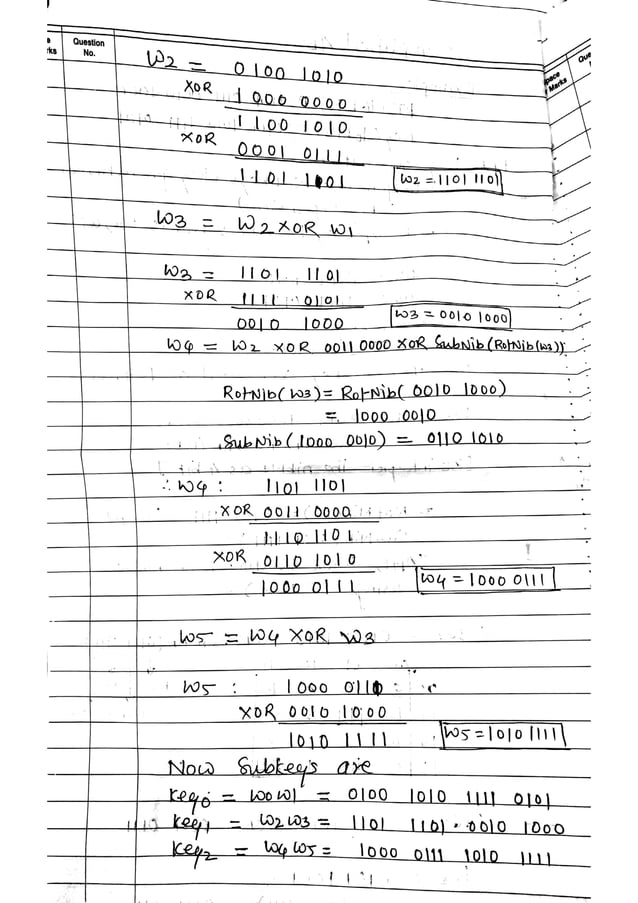 Question
No.
rks
W2 = 0100 1010
XOR 1000 0000
1100 1010
XOR 0001 0111
1101 1101
W2 = 1101 1101
W3 = W2 XOR W1
W3 = 1101 1101
XOR 1111 0101
0010 1000
W3 = 0010 1000
W4 = W2 XOR 0011 0000 XOR SubNib(RotNib(W3))
RotNib(W3) = RotNib(0010 1000)
= 1000 0010
SubNib(1000 0010) = 0110 1010
∴ W4 : 1101 1101
XOR 0011 0000
1110 1101
XOR 0110 1010
1000 0111
W4 = 1000 0111
W5 = W4 XOR W3
W5 : 1000 0111
XOR 0010 1000
1010 1111
W5 = 1010 1111
Now Subkeys are
Key0 = W0W1 = 0100 1010 1111 0101
Key1 = W2W3 = 1101 1101 0010 1000
Key2 = W4W5 = 1000 0111 1010 1111
Marks